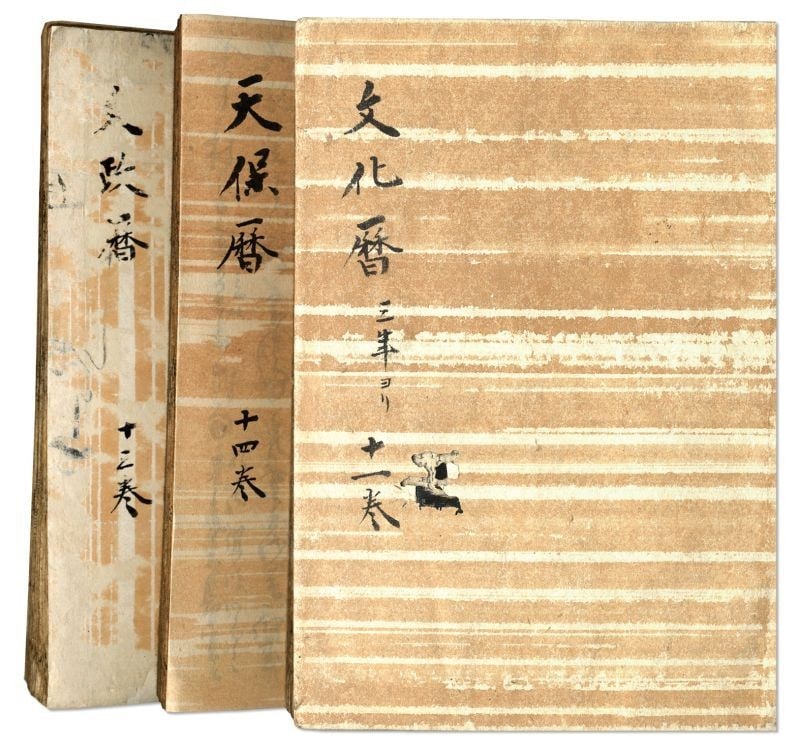 文化暦 三年ヨリ 十一巻
天保暦 十四巻
文政暦 十三巻